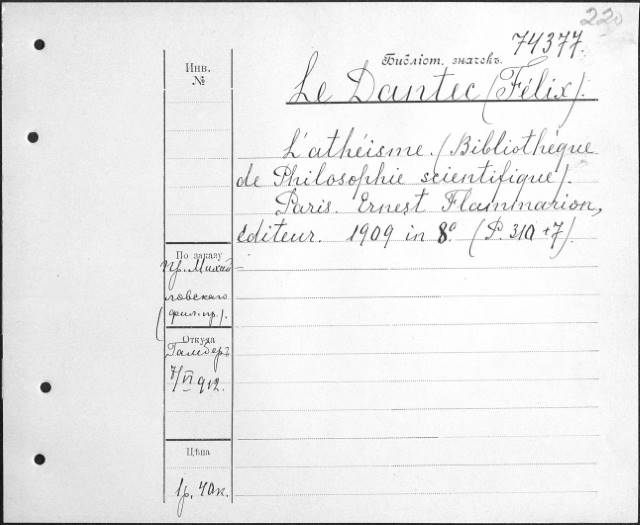 220
74377.
Библіот. значекъ.
Инв.
№
Le Dantec (Félix).
L'athéisme. (Bibliothèque
de Philosophie scientifique).
Paris. Ernest Flammarion,
éditeur. 1909 in 8º. (P. 310 +7).
По заказу
пр. Михай-
ловскаго
(фил. пр.).
Откуда
Гамберъ
7/VI 912.
Цѣна
1р. 40к.